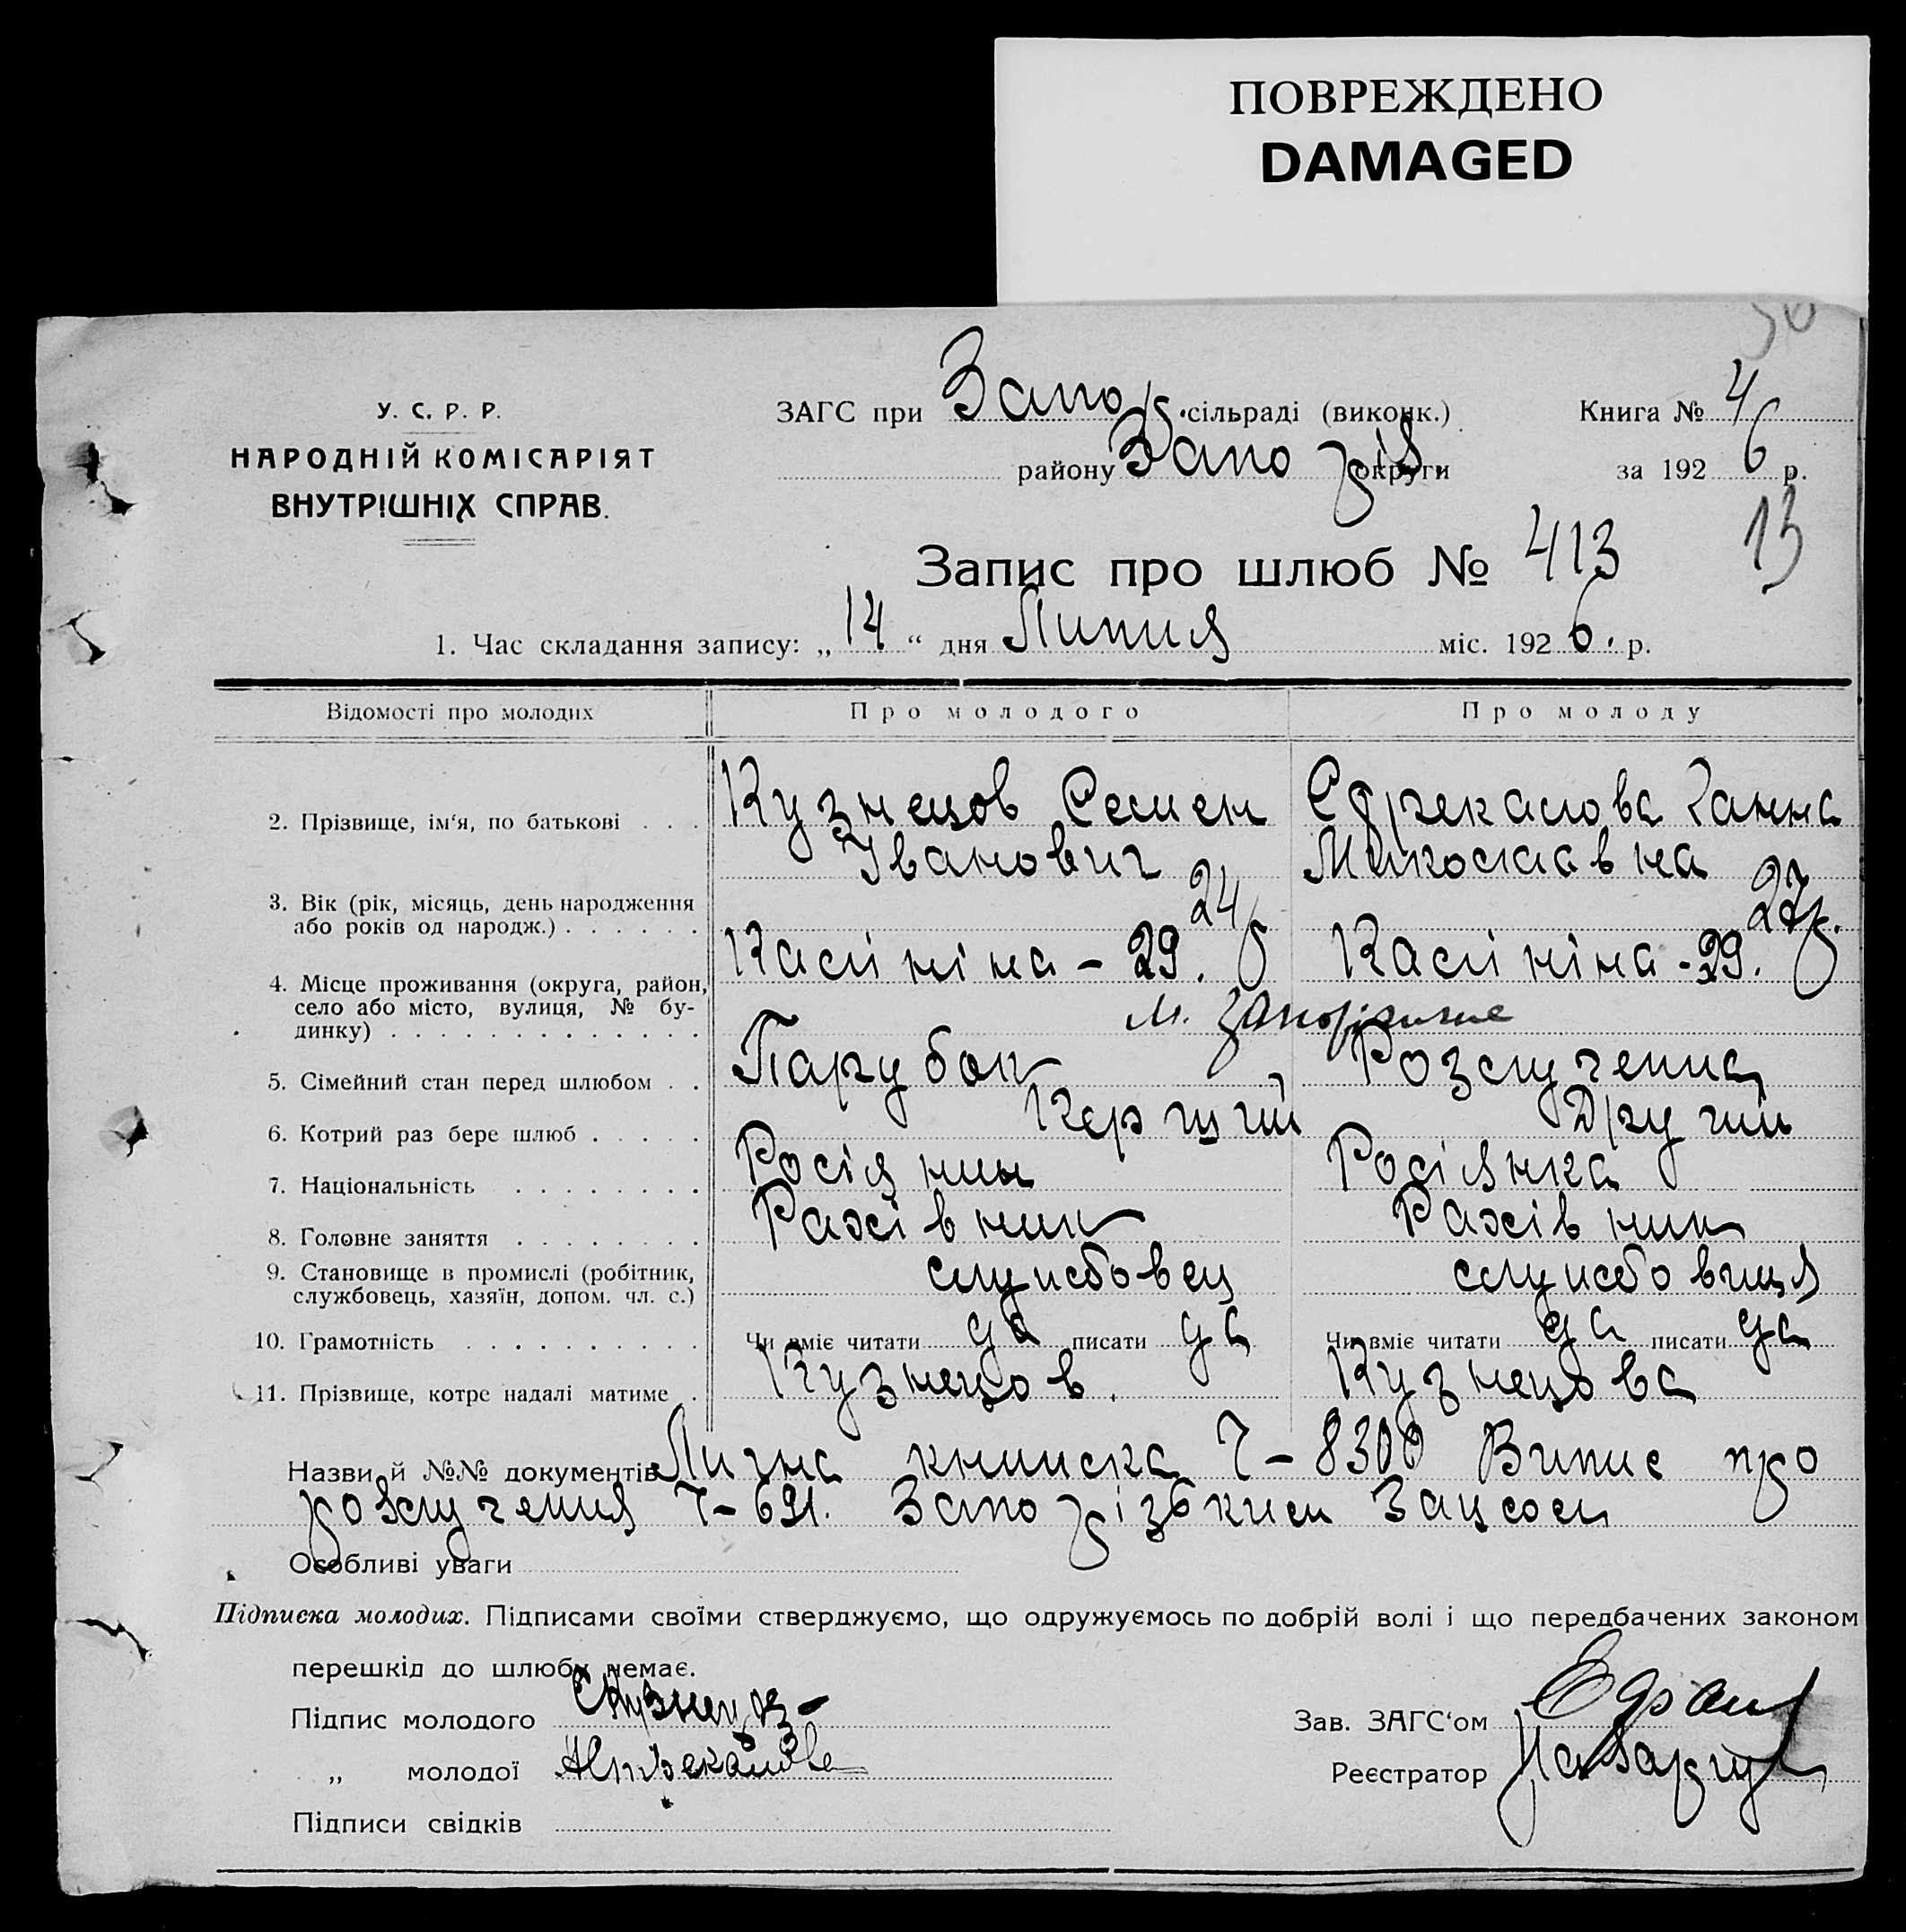 ПОВРЕЖДЕНО
DAMAGED
У. С. Р. Р.
НАРОДНІЙ КОМІСАРІЯТ
ВНУТРІШНІХ СПРАВ.
ЗАГС при Запор. сільраді (виконк.)
району Запоріз. округи
Книга № 4
за 1926 р.
13
Запис про шлюб № 413
1. Час складання запису: „14“ дня Липня міс. 1926. р.
Відомості про молодих Про молодого Про молоду
2. Прізвище, ім‘я, по батькові . . . Кузнецов Семен Іванович Ганна
3. Вік (рік, місяць, день народження або років од народж.) . . . . . . 24р 27р.
4. Місце проживання (округа, район, село або місто, вулиця, № будинку) . . . . . . . . . . . . . Калініна - 29. Калініна - 29.
м. Запоріжже
5. Сімейний стан перед шлюбом . . Парубок Розлучена
6. Котрий раз бере шлюб . . . . . Перший Другий
7. Національність . . . . . . . . Росіянин Росіянка
8. Головне заняття . . . . . . . . Рахівник Рахівник
9. Становище в промислі (робітник, службовець, хазяїн, допом. чл. с.) службовец службовиця
10. Грамотність . . . . . . . . . . Чи вміє читати да писати да Чи вміє читати да писати да
11. Прізвище, котре надалі матиме . Кузнецов. Кузнецова
Назви й №№ документів Лична книжка Ч - 8300 Випис про
розлучення Ч - 691. Запорізьким Загсом
Особливі уваги
Підписка молодих. Підписами своїми стверджуємо, що одружуємось по добрій волі і що передбачених законом
перешкід до шлюбу немає.
Підпис молодого СКузнецов
„ молодої
Підписи свідків
Зав. ЗАГС‘ом
Реєстратор